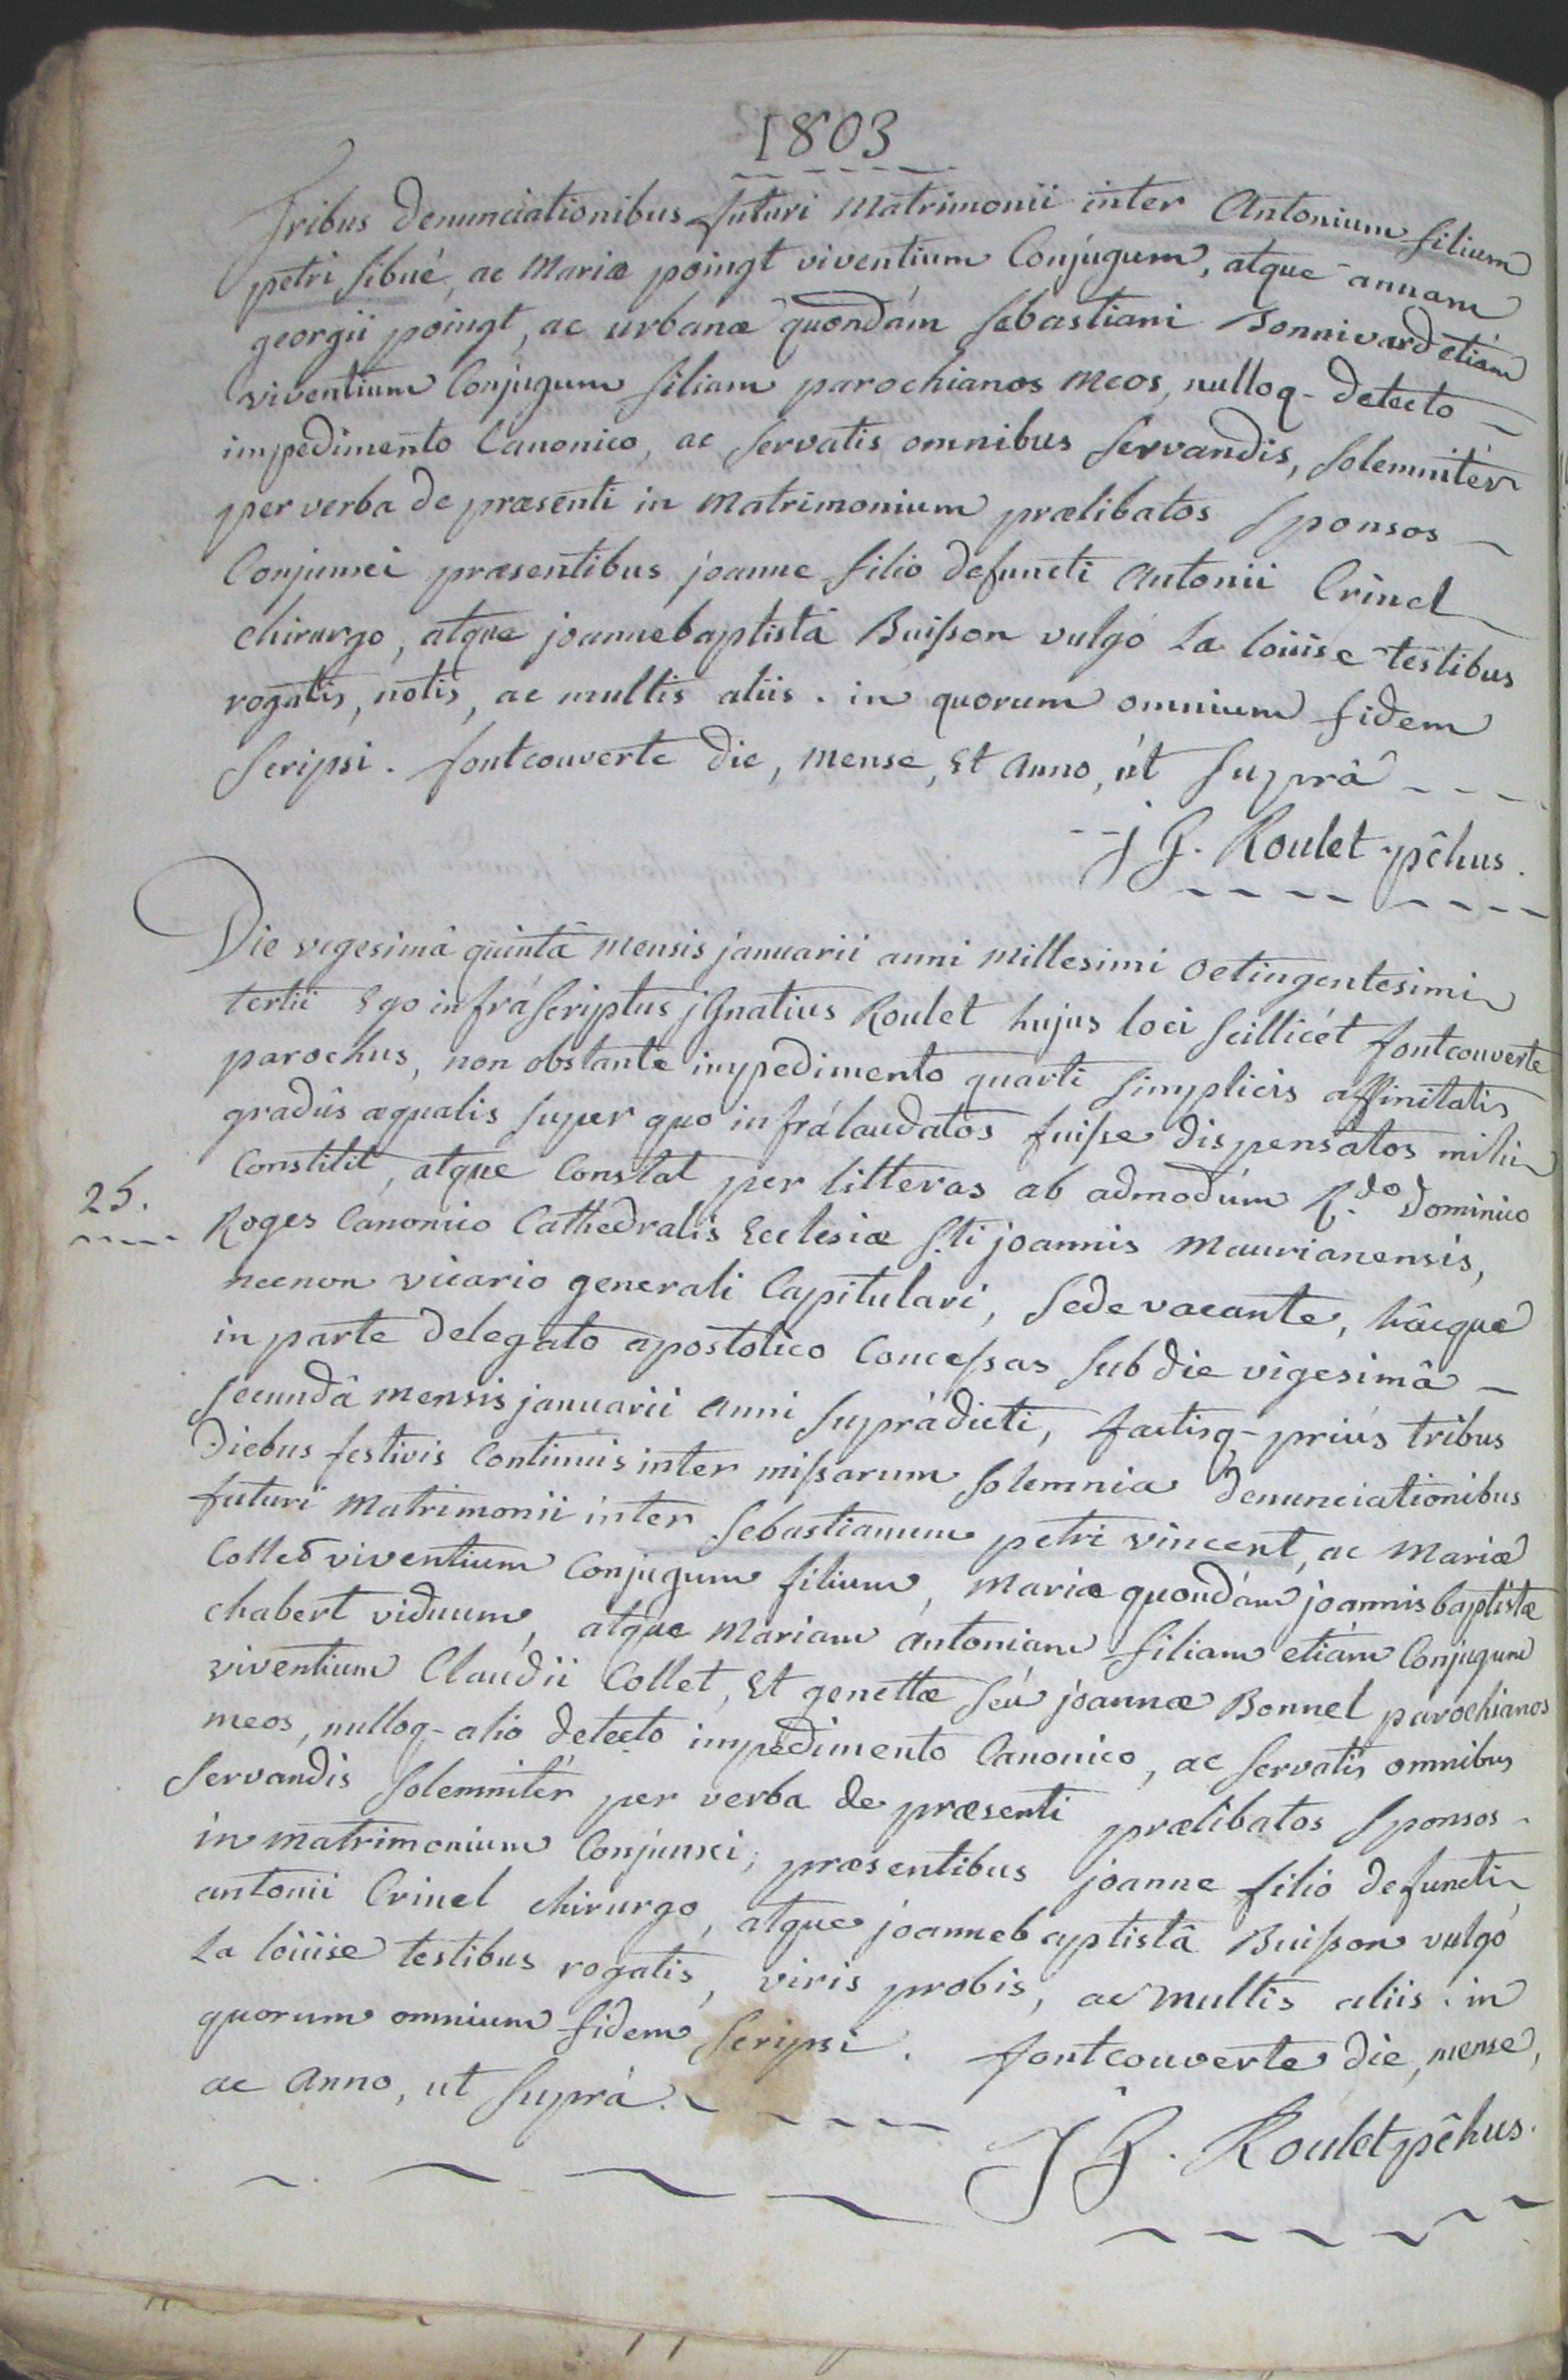 1803
Tribus denunciationibus futuri Matrimonii inter Antonium filium
petri sibué, ac Mariæ poingt viventium Conjugum, atque annam
georgii poingt, ac urbanæ quondám Sebastiani Bonnivard etiám
viventium Conjugum filiam parochianos meos, nulloq- detecto -
impedimento Canonico, ac servatis omnibus servandis, solemnitér
per verba de præsenti in matrimonium prælibatos sponsos -
Conjunxi præsentibus joanne filio defuncti Antonii Crinel
chirurgo, atque joannebaptistâ Buisson vulgó La loüise testibus
rogatis, notis, ac multis aliis. in quorum omnium fidem
scripsi. fontcouverte die, mense, Et anno, út suprâ - - - -
- - j G. Roulet pêhus.
Die vigesimâ quintâ mensis januarii anni millesimi octingentesimi
tertii Ego infráscriptus jGnatius Roulet hujus loci scillicét fontcouverte
parochus, non obstante impedimento quarti simplicis affinitatis
gradûs æqualis super quo infrálaudatos fuisse dispensatos mihi
Constitit, atque Constat per litteras ab admodúm R.do Dominico
25.
Roges Canonico Cathedralis Ecclesiæ S.ti joannis Maurianensis,
necnon vicario generali Capitulari, Sede vacante, hâcque
in parte delegato apostolico Concessas sub die vigesimâ -
secundâ mensis januarii anni suprádicti, factisq- priús tribus
diebus festivis Continuis inter missarum solemnia denunciationibus
futuri Matrimonii inter Sebastianum petri vincent, ac Mariæ
Collet viventium Conjugum filium, Mariæ quondám joannisbaptistæ
chabert viduum, atque Mariam antoniam filiam etiám Conjugum
viventium Claudii Collet, Et genettæ seú joannæ Bonnel parochianos
meos, nulloq- alio detecto impedimento Canonico, ac servatis omnibus
servandis solemnitér per verba de præsenti prælibatos sponsos -
in matrimonium Conjunxi; præsentibus joanne filio defuncti
antonii Crinel chirurgo, atque joannebaptistâ Buisson vulgó
La loüise testibus rogatis, viris probis, ac multis aliis. in
quorum omnium fidem scripsi. fontcouverte die, mense,
ac anno, ut suprá. - - - - -
J G. Roulet pêhus.